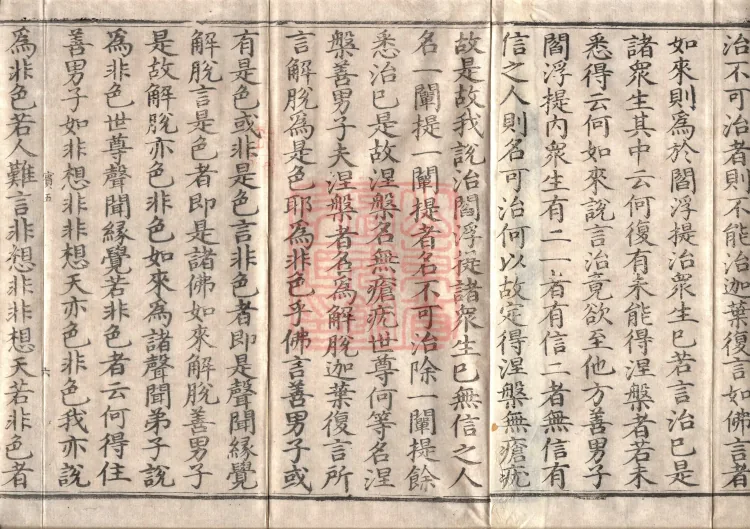 治不可治者則不能治迦葉復言如佛言者
如來則為於閻浮提治衆生已若言治已是
諸衆生其中云何復有未能得涅槃者若未
悉得云何如來說言治竟欲至他方善男子
閻浮提内衆生有二一者有信二者無信有
信之人則名可治何以故定得涅槃無瘡疣
故是故我說治閻浮提諸衆生已無信之人
名一闡提一闡提者名不可治除一闡提餘
悉治已是故涅槃名無瘡疣世尊何等名涅
槃善男子夫涅槃者名為解脫迦葉復言所
言解脫為是色耶為非色乎佛言善男子或
有是色或非是色言非色者即是聲聞緣覺
解脫言是色者即是諸佛如來解脫善男子
是故解脫亦色非色如來為諸聲聞弟子說
為非色世尊聲聞緣覺若非色者云何得住
善男子如非想非非想天亦色非色我亦說
六
為非色若人難言非想非非想天若非色者